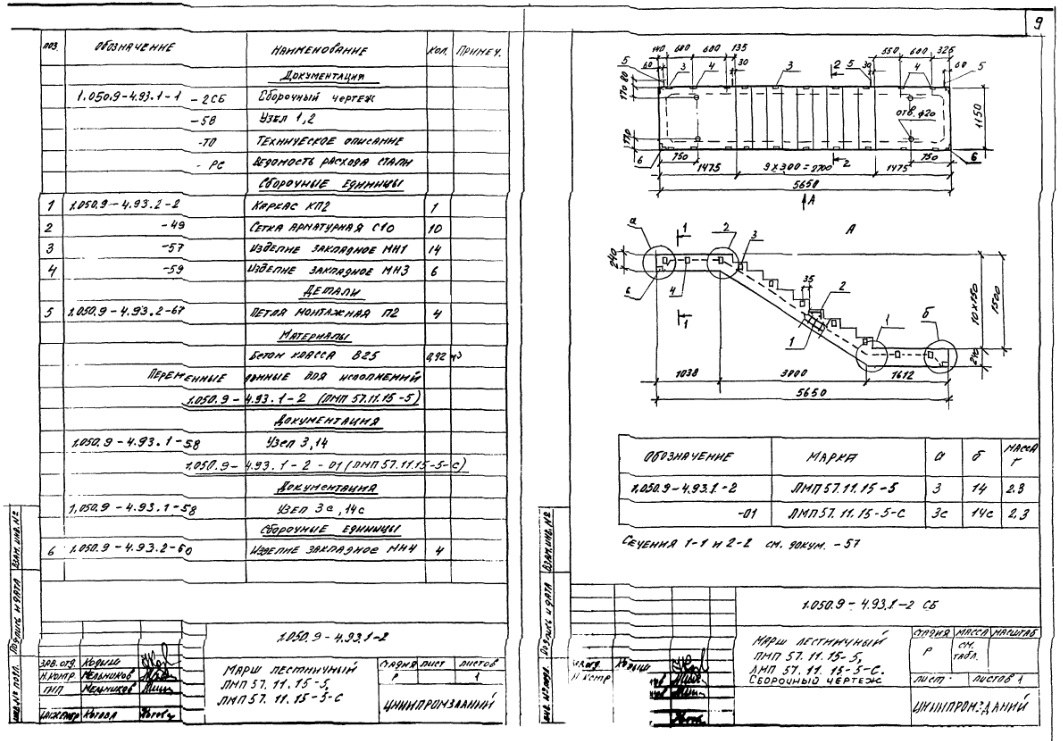 9
ПОЗ. ОБОЗНАЧЕНИЕ НАИМЕНОВАНИЕ КОЛ. ПРИМЕЧ.
ДОКУМЕНТАЦИЯ
1.050.9-4.93.1-1 -2СБ СБОРОЧНЫЙ ЧЕРТЕЖ
-58 УЗЕЛ 1,2
-ТО ТЕХНИЧЕСКОЕ ОПИСАНИЕ
-РС ВЕДОМОСТЬ РАСХОДА СТАЛИ
СБОРОЧНЫЕ ЕДИНИЦЫ
1 1.050.9-4.93.2-2 КАРКАС КП2 1
2 -49 СЕТКА АРМАТУРНАЯ С10 10
3 -57 ИЗДЕЛИЕ ЗАКЛАДНОЕ МН1 14
4 -59 ИЗДЕЛИЕ ЗАКЛАДНОЕ МН3 6
ДЕТАЛИ
5 1.050.9-4.93.2-67 ПЕТЛЯ МОНТАЖНАЯ П2 4
МАТЕРИАЛЫ
БЕТОН КЛАССА В25 0,92 м3
ПЕРЕМЕННЫЕ ДАННЫЕ ДЛЯ ИСПОЛНЕНИЙ
1.050.9-4.93.1-2 (ЛМП 57.11.15-5)
ДОКУМЕНТАЦИЯ
1.050.9-4.93.1-58 УЗЕЛ 3,14
1.050.9-4.93.1-2-01 (ЛМП 57.11.15-5-С)
ДОКУМЕНТАЦИЯ
1.050.9-4.93.1-58 УЗЕЛ 3с, 14с
СБОРОЧНЫЕ ЕДИНИЦЫ
6 1.050.9-4.93.2-60 ИЗДЕЛИЕ ЗАКЛАДНОЕ МН4 4
ИНВ.№ ПОДЛ. ПОДПИСЬ И ДАТА ВЗАМ.ИНВ.№
1.050.9-4.93.1-2
ЗАВ. ОТД. КОДЫШ
Н.КОНТР МЕЛЬНИКОВ
ГИП МЕЛЬНИКОВ
ИНЖЕНЕР
МАРШ ЛЕСТНИЧНЫЙ
ЛМП 57.11.15-5,
ЛМП 57.11.15-5-С
СТАДИЯ ЛИСТ ЛИСТОВ
Р 1
ЦНИИПРОМЗДАНИЙ
140 600 600 135 550 600 325
5 60 3 4 30 3 2 5 30 4 60 5
80
170
ОТВ. Ф20
1150
170
6 750 2 750 6
1475 9х300=2700 1475
5650
А
а 1 2 3 А
240
6 4 35 2
1 1 1 б
10х150 1500
240
1038 3000 1612
5650
ОБОЗНАЧЕНИЕ МАРКА а б МАССА Т
1.050.9-4.93.1-2 ЛМП 57.11.15-5 3 14 2.3
-01 ЛМП 57.11.15-5-С 3с 14с 2,3
СЕЧЕНИЯ 1-1 И 2-2 СМ. ДОКУМ. -57
ПОДПИСЬ И ДАТА ВЗАМ.ИНВ.№
1.050.9-4.93.1-2 СБ
КОДЫШ
Н КОНТР
МАРШ ЛЕСТНИЧНЫЙ
ЛМП 57.11.15-5,
ЛМП 57.11.15-5-С.
СБОРОЧНЫЙ ЧЕРТЕЖ
СТАДИЯ МАССА МАСШТАБ
Р СМ. ТАБЛ.
ЛИСТ ЛИСТОВ 1
ЦНИИПРОМЗДАНИЙ